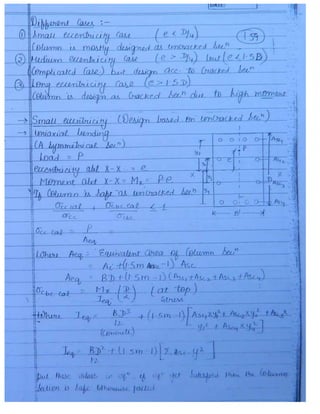 Different Cases :-
① Small eccentricity case (e < D/4)
Column is mostly designed as uncracked Secⁿ
② Medium eccentricity case (e > D/4) but (e < 1.5D)
(Complicated Case) but design acc to Cracked Secⁿ
③ Long eccentricity case (e > 1.5D)
Column is design as Cracked Secⁿ due to high moment
→ Small eccentricity (Design based on uncracked Secⁿ)
→ Uniaxial bending
(A symmetrical Secⁿ)
Load = P
eccentricity abt X-X = e
Moment abt X-X = Mx = Pe
If Column is safe as uncracked Secⁿ
σcc cal / σcc + σcbc cal / σcbc ≤ 1
σcc cal = P / Aeq
Where Aeq = Equivalent area of Column Secⁿ
= Ac + (1.5m - 1) Asc
Aeq = BD + (1.5m - 1)(Asc1 + Asc2 + Asc3 + Asc4)
σcbc cal = Mx / Ieq (D/2) (at top) Stress
Where Ieq = BD³/12 + (1.5m - 1)
(Concrete)
Ieq = BD³/12 + (1.5m - 1) [Σ Asc y²]
Put these values in eqⁿ if eqⁿ get satisfied then the Column
Section is Safe otherwise failed